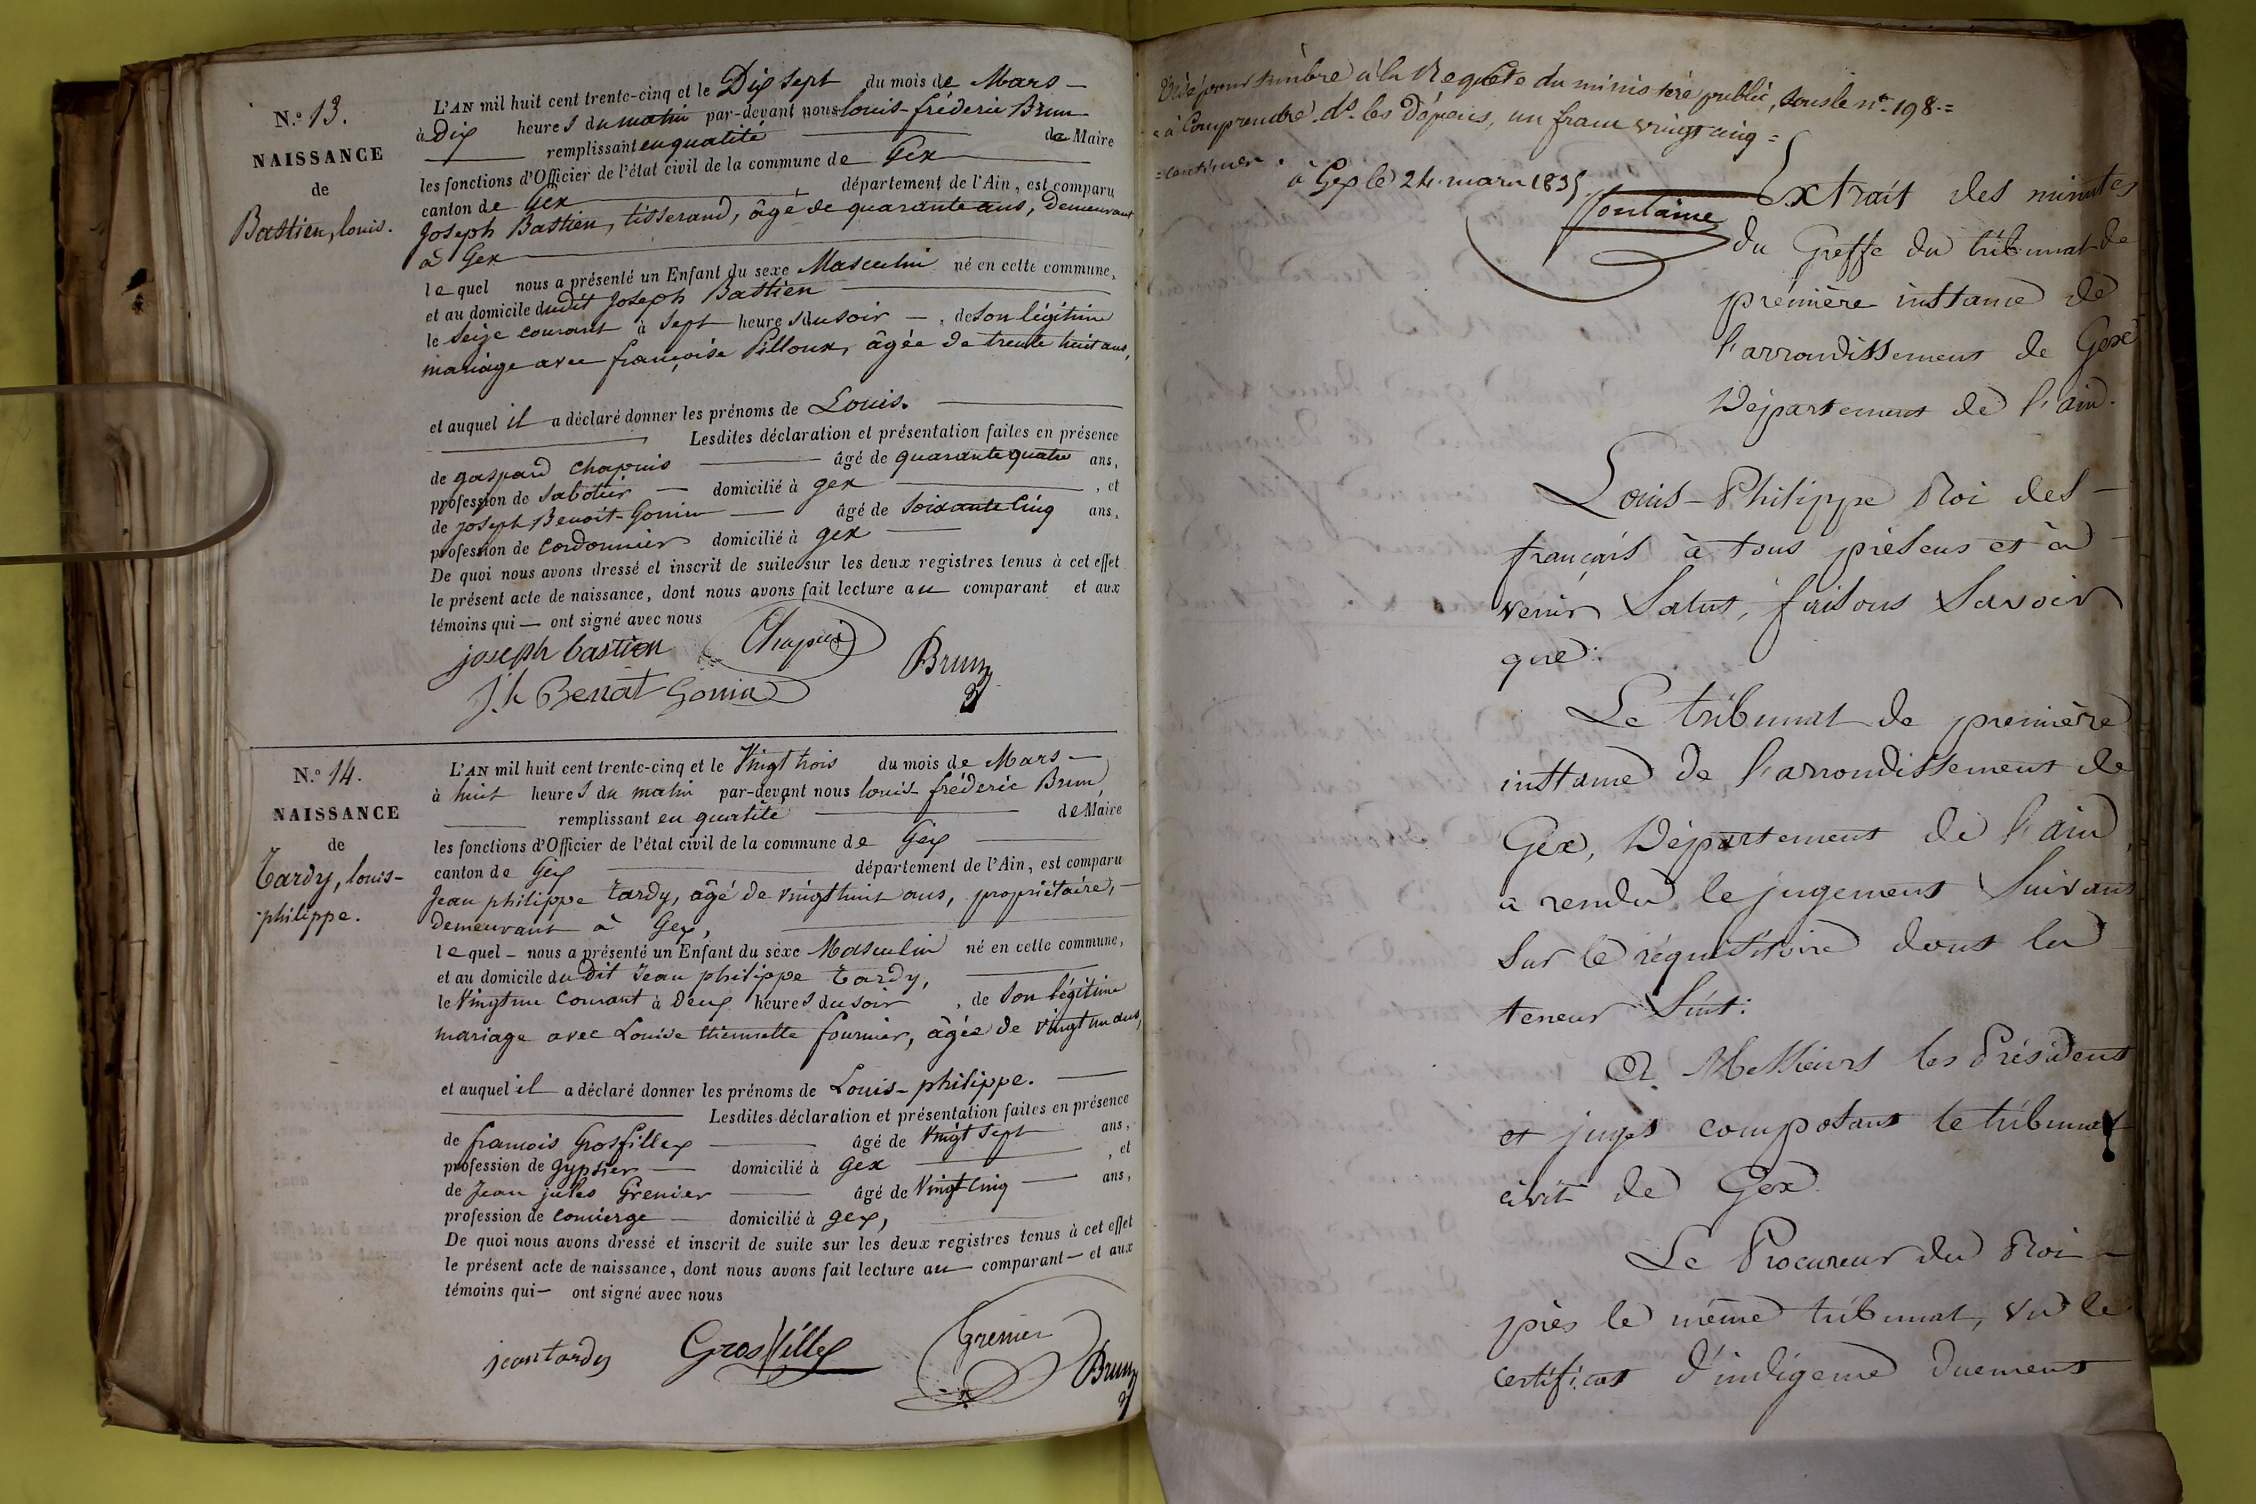 N.º 13.
NAISSANCE
de
Bastien, louis.
L'AN mil huit cent trente-cinq et le Dix sept du mois de Mars
à Dix heures du matin par-devant nous louis-fréderic Brun
remplissant en qualité de Maire
les fonctions d'Officier de l'état civil de la commune de Gex
canton de Gex département de l'Ain, est comparu
Joseph Bastien, tisserand, âgé de quarante ans, demeurant
à Gex
lequel nous a présenté un Enfant du sexe Masculin né en cette commune,
et au domicile dudit Joseph Bastien
le seize courant à sept heures du soir, de son légitime
mariage avec françoise Pilloux, âgée de trente huit ans,
et auquel il a déclaré donner les prénoms de Louis.
Lesdites déclaration et présentation faites en présence
de gaspard Chapuis âgé de quarante quatre ans,
profession de sabotier domicilié à gex, et
de joseph Benoit-Gonin âgé de soixante cinq ans,
profession de cordonnier domicilié à gex
De quoi nous avons dressé et inscrit de suite sur les deux registres tenus à cet effet
le présent acte de naissance, dont nous avons fait lecture au comparant et aux
témoins qui ont signé avec nous
joseph bastien Chapuis Brun
J.h Benoit Gonin
N.º 14.
NAISSANCE
de
Tardy, louis-
philippe.
L'AN mil huit cent trente-cinq et le Vingt trois du mois de Mars
à huit heures du matin par-devant nous louis fréderic Brun,
remplissant en qualité de Maire
les fonctions d'Officier de l'état civil de la commune de Gex
canton de Gex département de l'Ain, est comparu
Jean philippe Tardy, âgé de vingt huit ans, propriétaire,
demeurant à Gex,
lequel nous a présenté un Enfant du sexe Masculin né en cette commune,
et au domicile dudit Jean philippe Tardy,
le Vingt un Courant à Deux heures du soir, de son légitime
mariage avec Louise thiennette fournier, âgée de vingt un ans,
et auquel il a déclaré donner les prénoms de Louis-philippe.
Lesdites déclaration et présentation faites en présence
de françois Grosfilley âgé de Vingt sept ans,
profession de gypsier domicilié à gex, et
de Jean jules Grenier âgé de Vingt cinq ans,
profession de concierge domicilié à gex,
De quoi nous avons dressé et inscrit de suite sur les deux registres tenus à cet effet
le présent acte de naissance, dont nous avons fait lecture au comparant et aux
témoins qui ont signé avec nous
jean tardy Grosfilley Grenier Brun
Visé pour timbre à la Requête du ministère public, sous le n.º 198.=
= à Comprendre ds. les dépens, un franc vingt cinq =
= centimes.
à Gex le 24 mars 1835
fontaine
Extrait des minutes
du Greffe du tribunal de
première instance de
l'arrondissement de Gex
Département de l'ain.
Louis-Philippe Roi des
français à tous présens et à
venir Salut, faisons Savoir
que:
Le tribunal de première
instance de l'arrondissement de
Gex, Département de l'ain,
a rendu le jugement Suivant
Sur le réquisitoire dont la
teneur Suit:
A Messieurs les Président
et juges composant le tribunal
civil de Gex
Le Procureur du Roi
près le même tribunal, vu le
certificat d'indigence duement